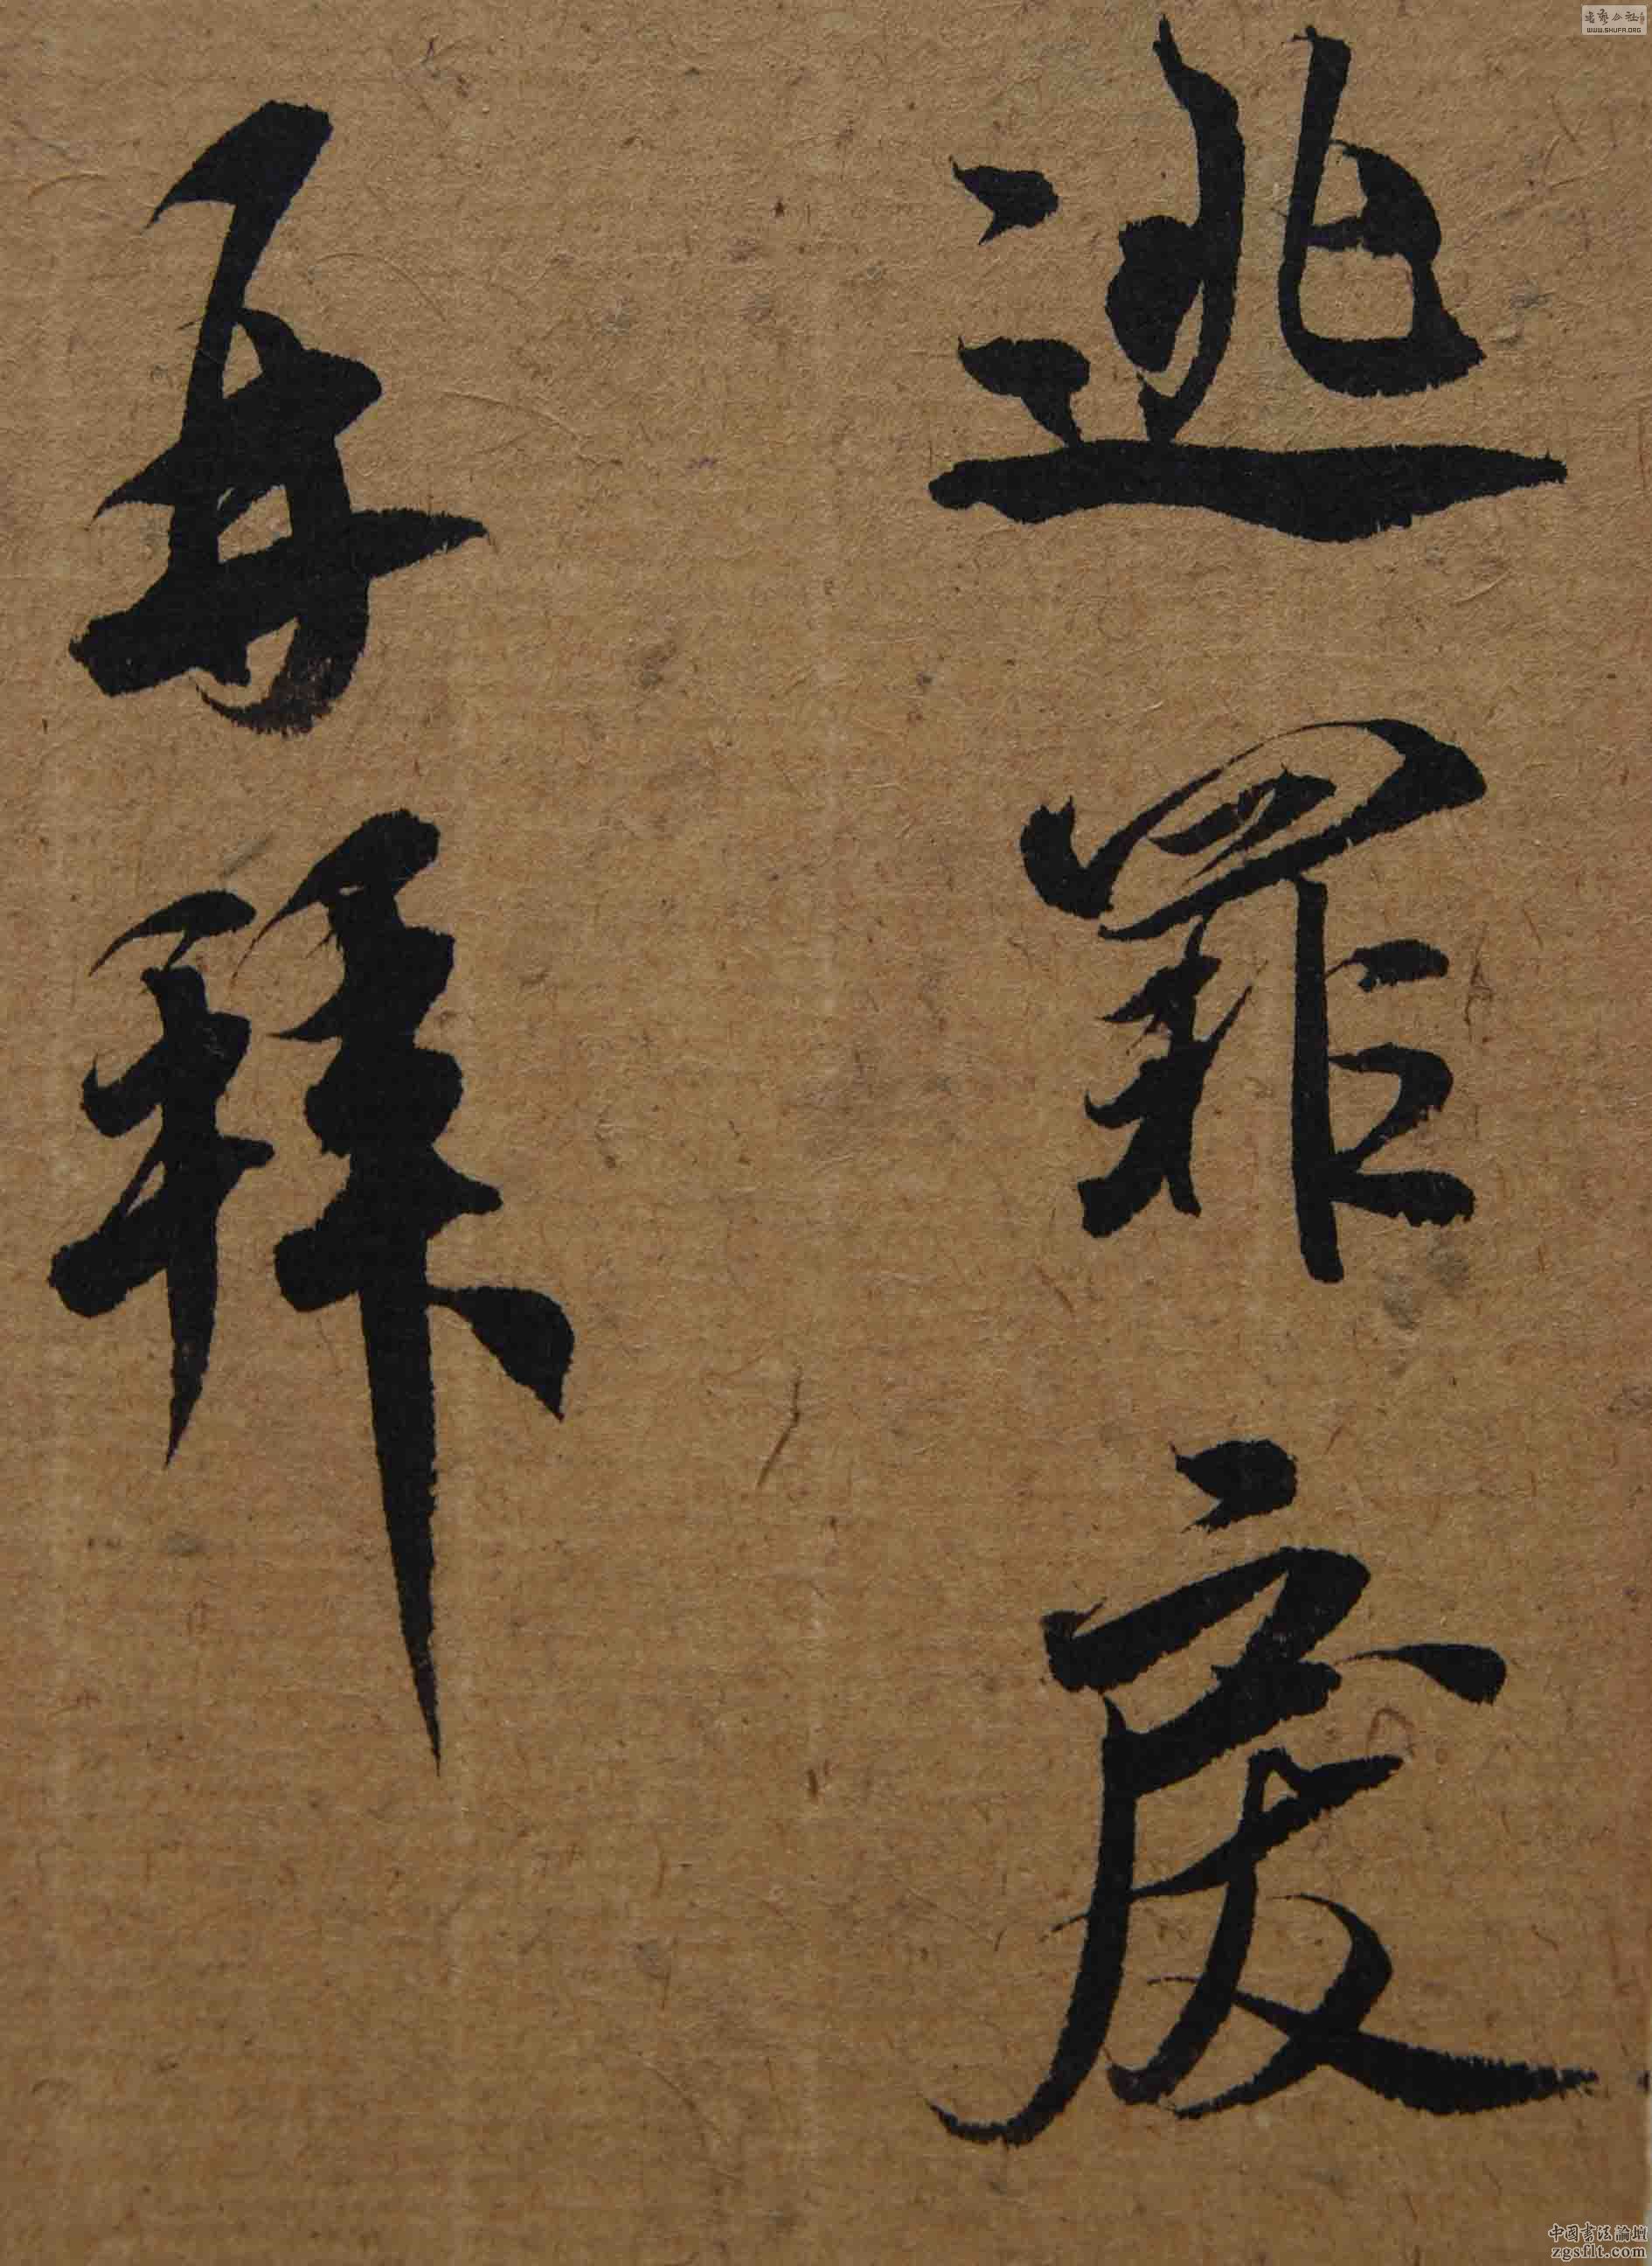 逃罪戾
再拜
書藝公社
WWW.SHUFA.ORG
中國書法論壇
zgsflt.com